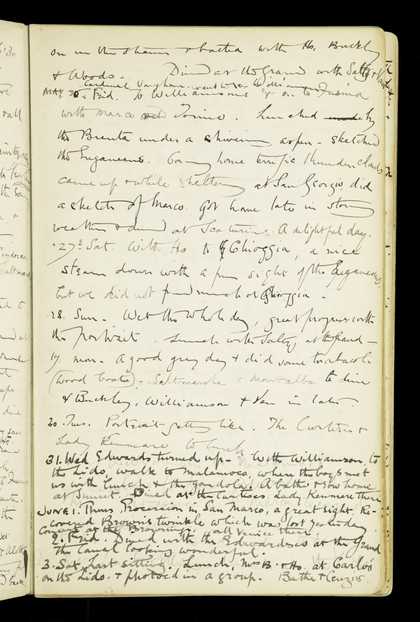 on in the & bathed with Ho. Buckley
& Woods. Dined at the Grand with Salty &
Cardinal Vaughan
MAY 26. Frid. to Williamsons & on to Fusina
with Marco & Tonino. Lunched by
the Brenta under a shivering aspen - sketched
the Euganeans. Coming home terrific thunder clouds
came up & while sheltering at San Giorgio, did
a sketch of Marco. Got home late in stormy
weather & dined at A delightful day.
27. Sat. With Ho to Chioggia, a nice
steam down with a fine sight of the Euganeans,
but we did not find much at Chioggia.
28. Sun. Wet the whole day, great progress with
the portrait. Lunch with Salty at Grand -
19. Mon. A good grey day & did some
(wood boats). Saltmarshe & to dine
& Buckley, Williamson & Ken in later
30. Tues. Portrait getting like. The &
Lady Kenmare to lunch
31. Wed Edwards turned up. With Williamson to
the Lido, walk to Malamocco, where the boys met
us with lunch & the gondola. A bathe & row home
at sunset. Dined at the Curtises, Lady Kenmare there
JUNE 1. Thurs Procession in San Marco, a great sight. Re-
covered Brown's twinkle which was lost yesterday.
at the Brownings - all Venice there.
2. Frid. Dined with the Edwardses at the Grand
the Canal looking wonderful.
3. Sat. Last sitting. Lunch, Mrs B. & Ho. at Carlos
on the Lido. & photoed in a group. Bathe &